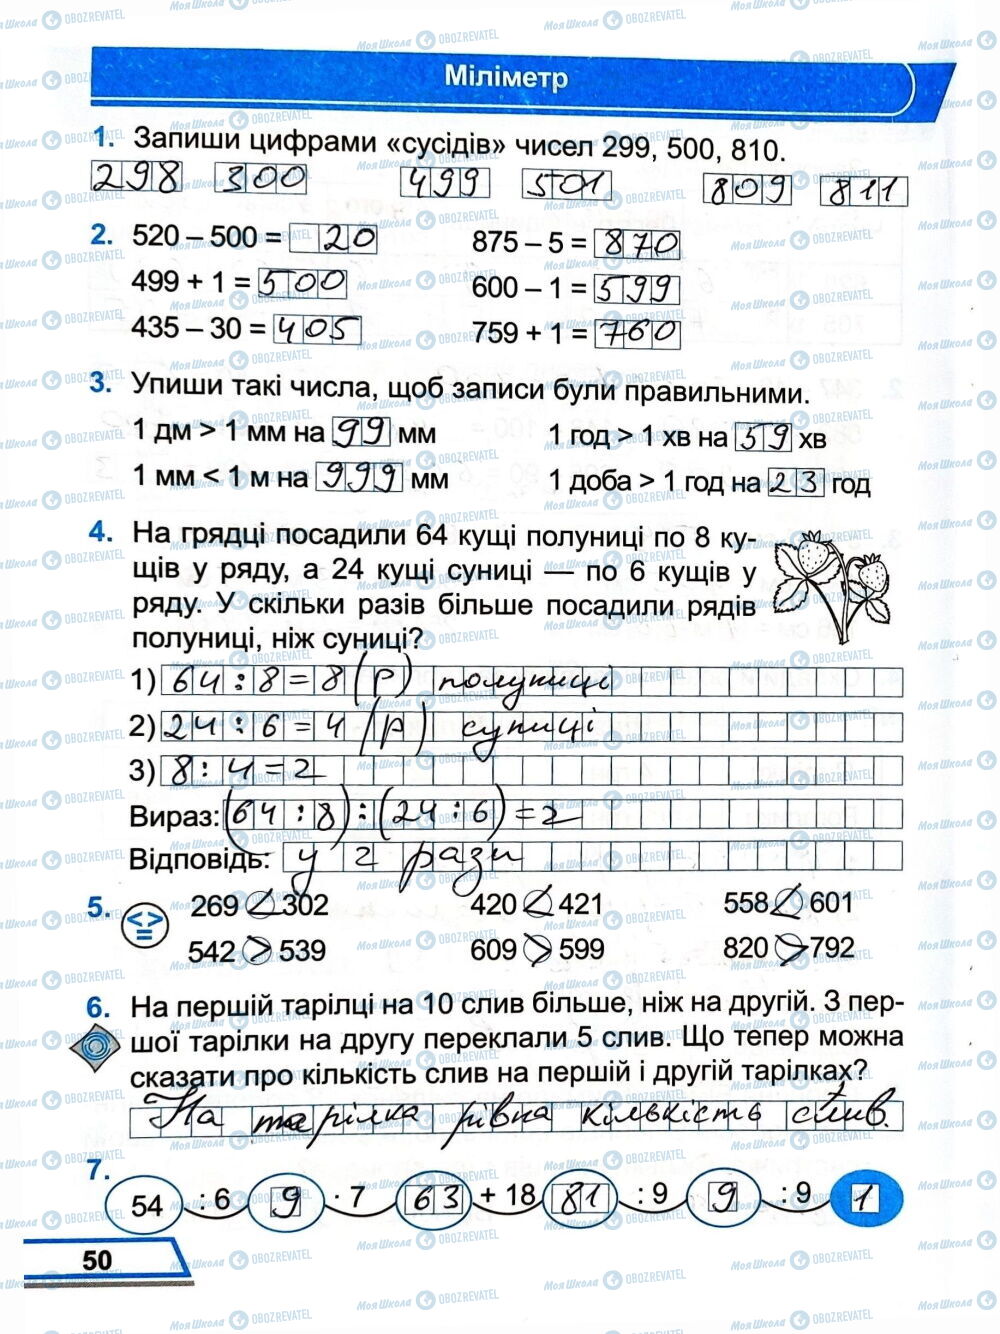 Міліметр
1. Запиши цифрами «сусідів» чисел 299, 500, 810.
298 300 499 501 809 811
2. 520 – 500 = 20 875 – 5 = 870
499 + 1 = 500 600 – 1 = 599
435 – 30 = 405 759 + 1 = 760
3. Упиши такі числа, щоб записи були правильними.
1 дм > 1 мм на 99 мм 1 год > 1 хв на 59 хв
1 мм < 1 м на 999 мм 1 доба > 1 год на 23 год
4. На грядці посадили 64 кущі полуниці по 8 ку-
щів у ряду, а 24 кущі суниці — по 6 кущів у
ряду. У скільки разів більше посадили рядів
полуниці, ніж суниці?
1) 64 : 8 = 8 (р) полуниці
2) 24 : 6 = 4 (р) суниці
3) 8 : 4 = 2
Вираз: (64 : 8) : (24 : 6) = 2
Відповідь: у 2 рази
5. < > = 269 < 302 420 < 421 558 < 601
542 > 539 609 > 599 820 > 792
6. На першій тарілці на 10 слив більше, ніж на другій. З пер-
шої тарілки на другу переклали 5 слив. Що тепер можна
сказати про кількість слив на першій і другій тарілках?
На тарілка рівна кількість слив.
7. 54 : 6 9 · 7 63 + 18 81 : 9 9 : 9 1
50
МояШкола OBOZREVATEL